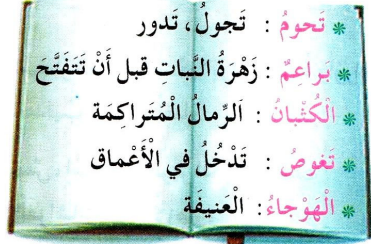 * تَحومُ : تَجولُ، تَدور
* بَراعِمٌ : زَهْرَةُ النَّباتِ قبل أَنْ تَتَفَتَّح
* الْكُثْبانُ : اَلرِّمالُ الْمُتَراكِمَة
* تَغوصُ : تَدْخُلُ في الْأَعْماق
* الْهَوْجاءُ : الْعَنيفَة